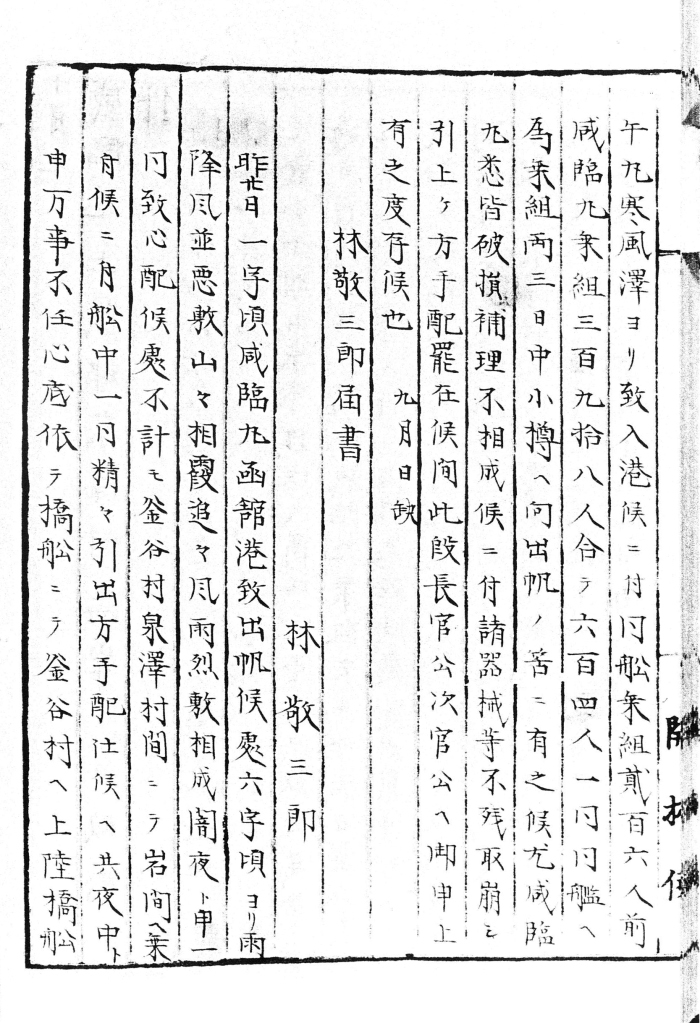 午丸寒風澤ヨリ致入港候ニ付同船乗組貳百六人前
咸臨丸乗組三百九拾八人合テ六百四人一同同艦ヘ
爲乗組両三日中小樽ヘ向出帆ノ筈ニ有之候尤咸臨
丸悉皆破損補理不相成候ニ付諸器械等不残取崩シ
引上ケ方手配罷在候間此段長官公次官公ヘ御申上
有之度存候也 九月日缺
林敬三郎届書
林敬三郎
昨廿日一字頃咸臨丸函館港致出帆候處六字頃ヨリ雨
降風並悪敷山々相霞追々風雨烈敷相成闇夜ト申一
同致心配候處不計モ釜谷村泉澤村間ニテ岩間ヘ乗
付候ニ付船中一同精々引出方手配仕候ヘ共夜中ト
申万事不任心底依テ橋船ニテ釜谷村ヘ上陸橋船
開拓使